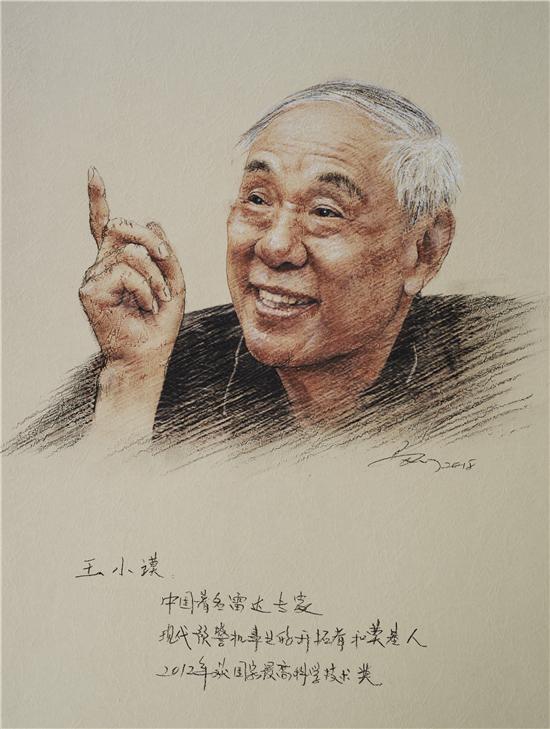 2018
王小谟:
中国著名雷达专家
现代预警机事业的开拓者和奠基人
2012年获国家最高科学技术奖